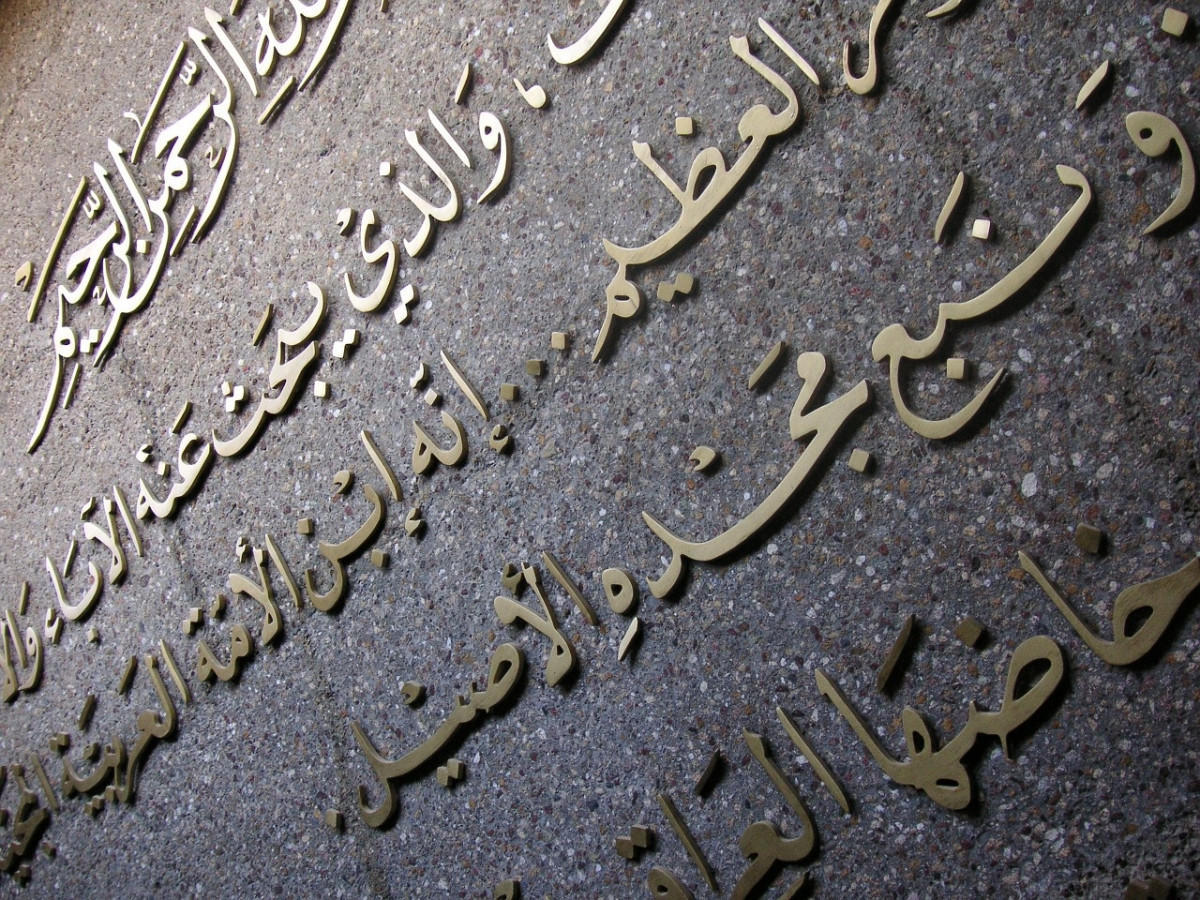 الرَّحْمٰنِ الرَّحِيْمِ
، وَالذيْ يبحَث عَنْه الآبَاء
العظيم ... إنّه ابْن الأمَّة العَربيَّة
وَ نَبع مَجْدهِ الأصيْل .
خاضهَا العَراق